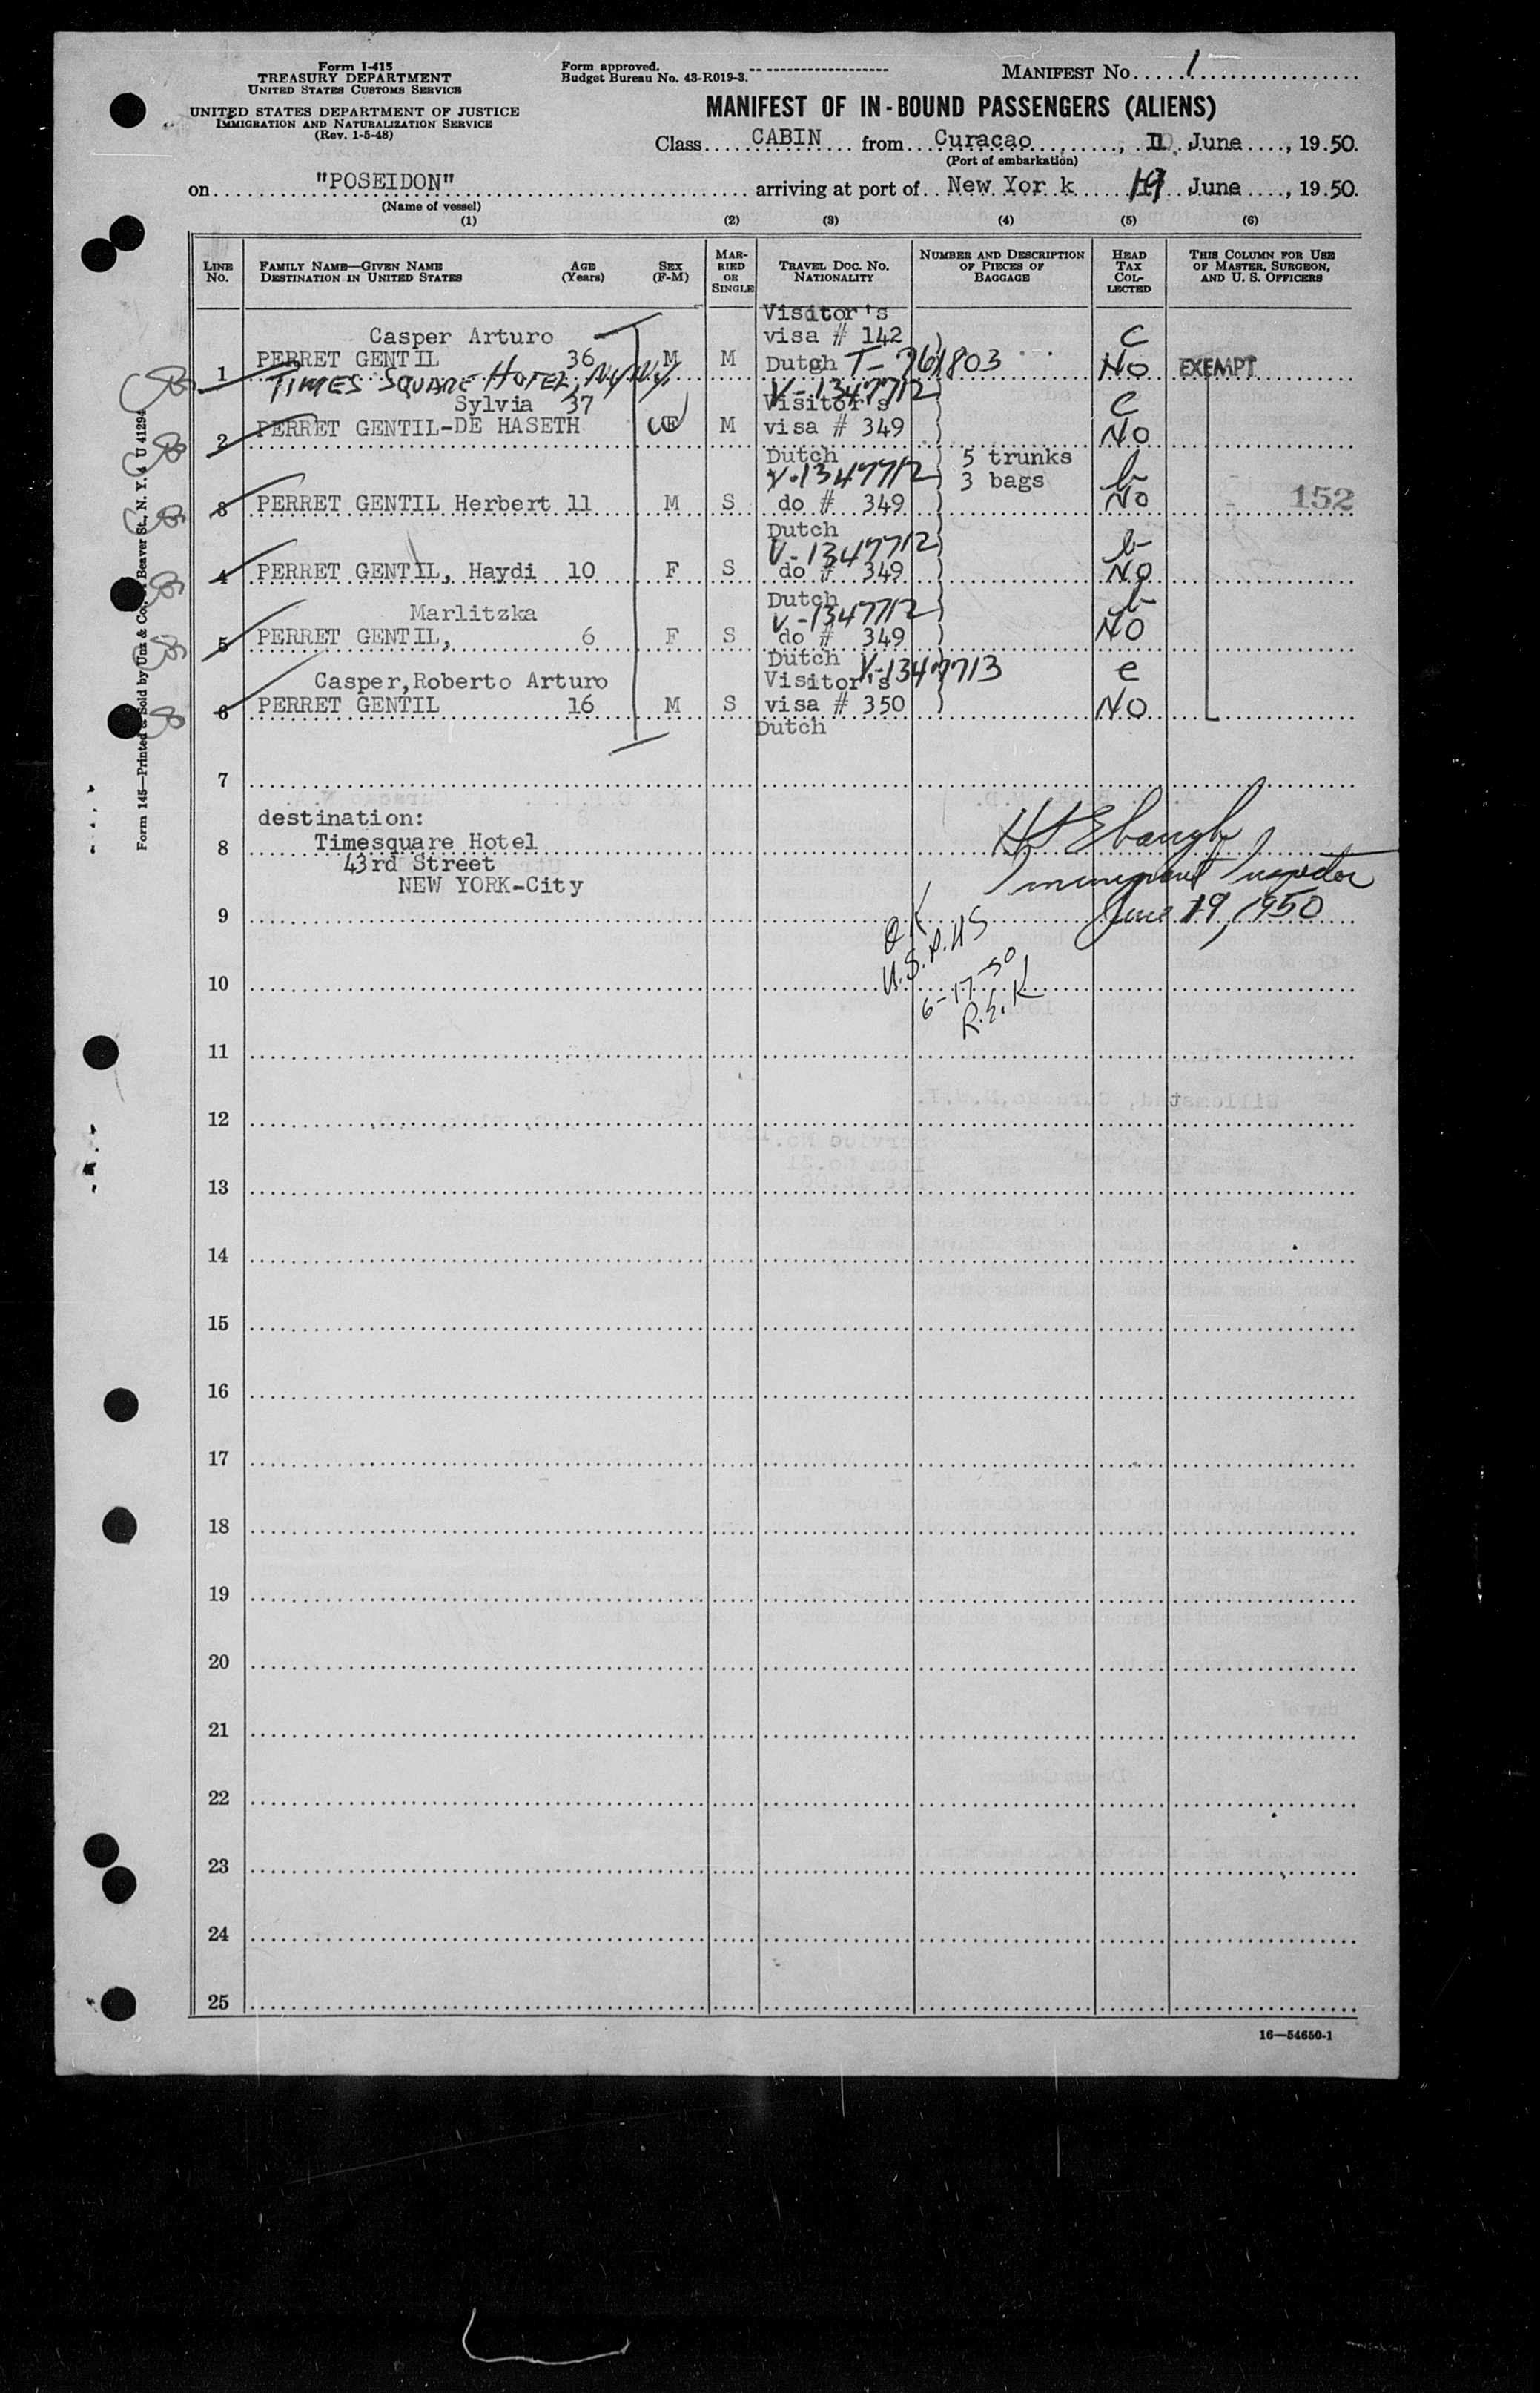 Form I-415
TREASURY DEPARTMENT
UNITED STATES CUSTOMS SERVICE
UNITED STATES DEPARTMENT OF JUSTICE
IMMIGRATION AND NATURALIZATION SERVICE
(Rev. 1-5-48)
Form approved.
Budget Bureau No. 43-R019-3.
MANIFEST No. 1
MANIFEST OF IN-BOUND PASSENGERS (ALIENS)
Class CABIN from Curacao, June, 1950.
(Port of embarkation)
on "POSEIDON" arriving at port of New York 19 June, 1950.
(Name of vessel)
(1) (2) (3) (4) (5) (6)
LINE No.
FAMILY NAME—GIVEN NAME
DESTINATION IN UNITED STATES
AGE (Years)
SEX (F-M)
MARRIED OR SINGLE
TRAVEL DOC. NO.
NATIONALITY
NUMBER AND DESCRIPTION OF PIECES OF BAGGAGE
HEAD TAX COLLECTED
THIS COLUMN FOR USE OF MASTER, SURGEON, AND U. S. OFFICERS
Visitor's
Casper Arturo visa # 142 C
1 PERRET GENTIL 36 M M Dutch T-761803 No EXEMPT
TIMES SQUARE HOTEL, NY, NY V-1347712
Sylvia 37 Visitor's C
2 PERRET GENTIL-DE HASETH F M visa # 349 No
Dutch 5 trunks
V-1347712 3 bags b
3 PERRET GENTIL Herbert 11 M S do # 349 No 152
Dutch
V-1347712 b
4 PERRET GENTIL, Haydi 10 F S do # 349 No
Marlitzka Dutch
V-1347712 b
5 PERRET GENTIL, 6 F S do # 349 NO
Dutch V-1347713
Casper,Roberto Arturo Visitor's e
6 PERRET GENTIL 16 M S visa # 350 NO
Dutch
7
destination:
8 Timesquare Hotel
43rd Street
NEW YORK-City
H Ebaugh
Immigrant Inspector
June 19, 1950
9
OK
U.S.P.H.S
6-17-50
R.E.K
10
11
12
13
14
15
16
17
18
19
20
21
22
23
24
25
16—54650-1
Form 145—Printed & Sold by Unz & Co., Beaver St., N. Y. 4 U 41294